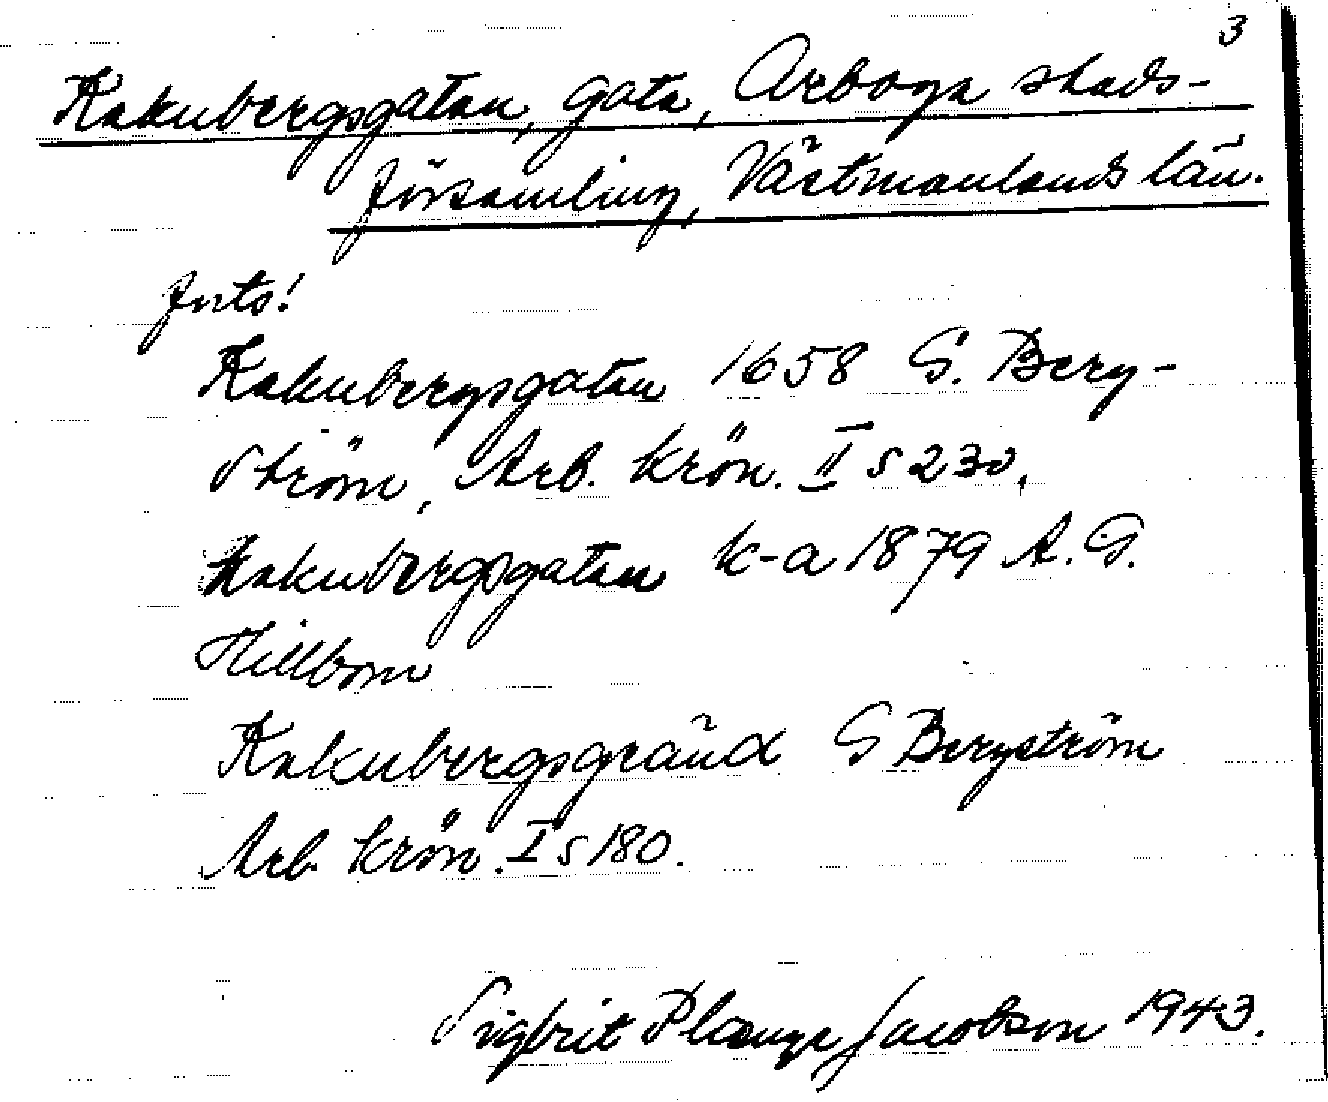 3
Kakubergsgatan, gata, Arboga stads-
församling, Västmanlands län.
Forts!
Kakubergsgatan 1658 G. Berg-
ström, Arb. krön. II s 230,
Kakubergsgatan k-a 1879 A. G.
Hillbom
Kakubergsgränd G Bergström
Arb. krön. I s 180.
Sigbrit Plænge Jacobson 1943.